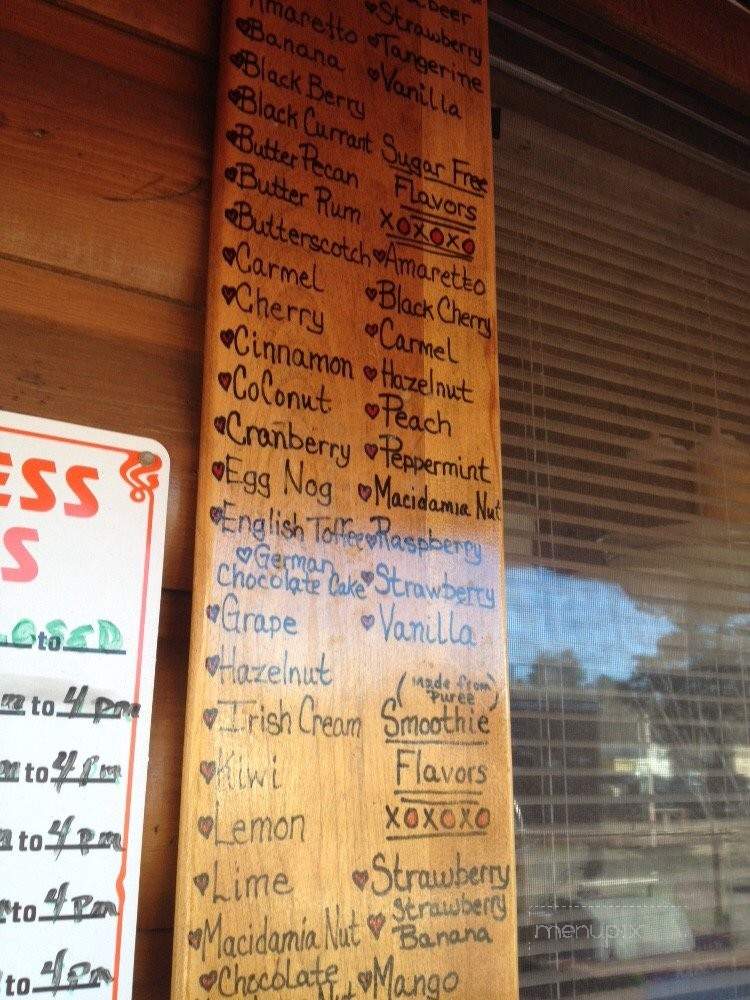 Amaretto
Banana
Black Berry
Black Currant
Butter Pecan
Butter Rum
Butterscotch
Carmel
Cherry
Cinnamon
CoConut
Cranberry
Egg Nog
English Toffee
German
Chocolate Cake
Grape
Hazelnut
Irish Cream
Kiwi
Lemon
Lime
Macidamia Nut
Chocolate
Strawberry
Tangerine
Vanilla
Sugar Free
Flavors
XOXOXO
Amaretto
Black Cherry
Carmel
Hazelnut
Peach
Peppermint
Macidamia Nut
Raspberry
Strawberry
Vanilla
(Made from
Puree)
Smoothie
Flavors
XOXOXO
Strawberry
Strawberry
Banana
Mango
ESS
S
to
to 4 pm
to 4 pm
to 4 pm
to 4 pm
to 4 pm
menupix